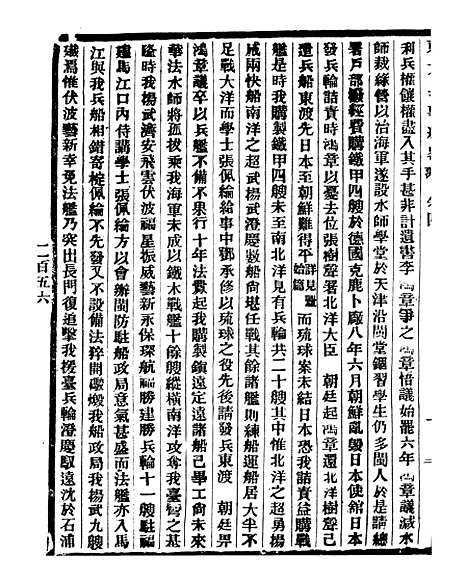 利兵權餉權盡入其手甚非計遺書李鴻章爭之鴻章悟議始罷六年鴻章請減水
師裁綠營以治海軍遂設水師學堂於天津沿閩堂餽習學生仍多閩人於是請總
署戶部撥經費購鐵甲四艘於德國克鹿卜廠八年六月朝鮮亂毀日本使館日本
發兵輪詰責時鴻章以憂去位張樹聲署北洋大臣 朝廷起鴻章署北洋樹聲已
遣兵船東渡先日本至朝鮮難得平詳見亂始篇而琉球案未結日本恐我詰責益購戰
艦是時我購製鐵甲四艘未至南北洋見有兵輪共二十艘其中惟北洋之超勇揚
威兩快船南洋之超武揚武澄慶數船尙堪任戰其餘諸艦則練船運船居大半不
足戰大洋而學士張佩綸給事中鄧承修以琉球之役先後請發兵東渡 朝廷畀
鴻章議卒以兵艦不備不果行十年法釁起我購製鎮遠定遠諸船已畢工尙未來
華法水師將孤拔乘我海軍未成以鐵木戰艦十餘艘縱橫南洋攻奪我臺灣之基
隆時我揚武濟安飛雲伏波福星振威藝新永保琛航福勝建勝兵輪十一艘駐福
建馬江口內侍講學士張佩綸方以會辦閩防駐船政局意氣甚盛而法艦亦入馬
江與我兵船相錯寄椗佩綸不先發又不設備法猝開礮燬我船政局我揚武九艘
殲焉惟伏波藝新幸免法艦乃突出長門復追擊我援臺兵輪澄慶馭遠沈於石浦
二百五六